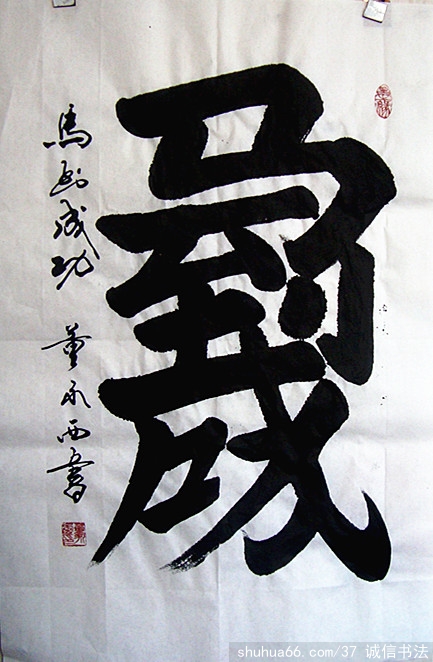 马到成功
馬到成功 董永西書
shuhua66.com/37 诚信书法